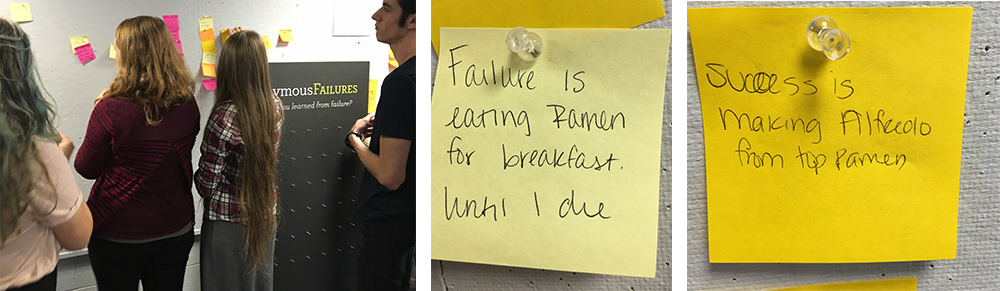 ymousFailures
you learned from failure?
Failure is
eating Ramen
for breakfast.
Until I die
Success is
making Alfredo
from top Ramen